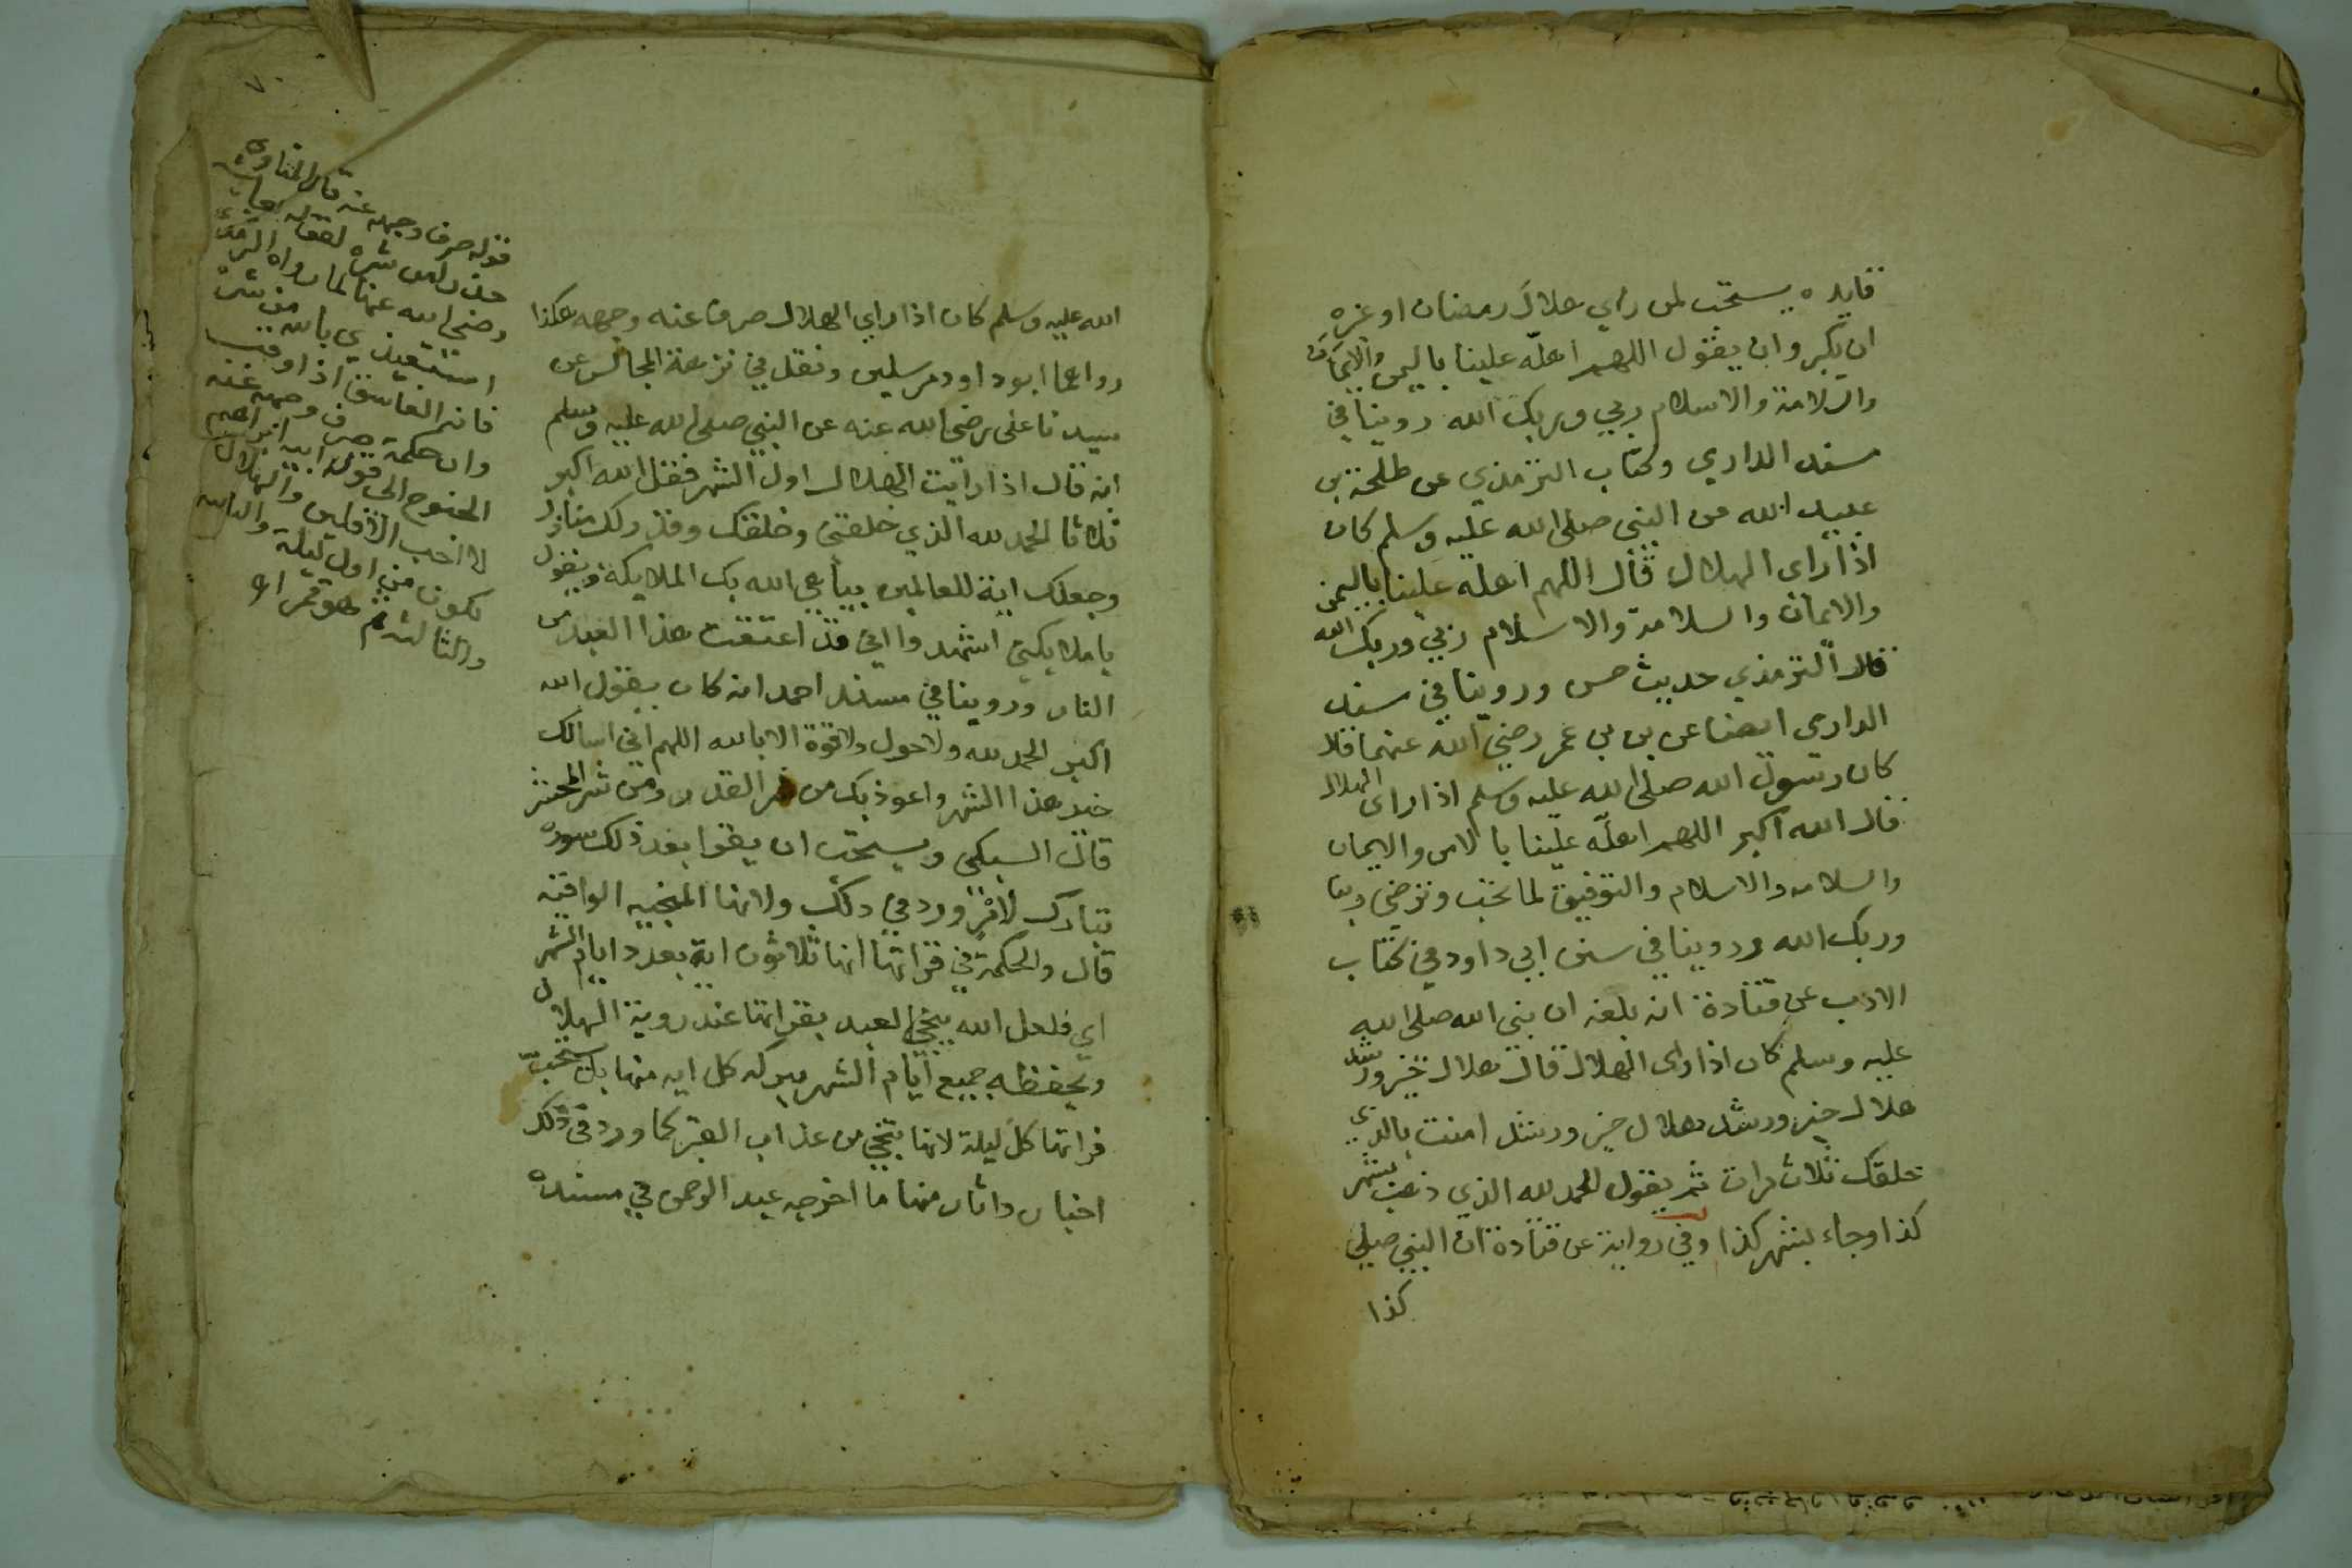 فايده يستحب لمن راي هلال رمضان او غيره
ان يكبر وان يقول اللهم اهله علينا باليمن والايمان
والسلامة والاسلام ربي وربك الله روينا في
مسند الدارمي وكتاب الترمذي عن طلحة بن
عبيد الله عن النبي صلى الله عليه وسلم كان
اذا راى الهلال قال اللهم اهله علينا باليمن
والايمان والسلامة والاسلام ربي وربك الله
قال الترمذي حديث حسن وروينا في مسند
الدارمي ايضا عن بن عمر رضي الله عنهما قال
كان رسول الله صلى الله عليه وسلم اذا راى الهلال
قال الله اكبر اللهم اهله علينا بالامن والايمان
والسلامه والاسلام والتوفيق لما تحب وترضى ربنا
وربك الله وروينا في سنن ابي داود في كتاب
الادب عن قتادة انه بلغه ان نبي الله صلى الله
عليه وسلم كان اذا راى الهلال قال هلال خير ورشد
هلال خير ورشد هلال خير ورشد امنت بالذي
خلقك ثلاث مرات ثم يقول الحمد لله الذي ذهب بشهر
كذا وجاء بشهر كذا وفي رواية عن قتادة ان النبي صلى
كذا
٧٠
الله عليه وسلم كان اذا راي الهلال صرف عنه وجهه هكذا
رواهما ابو داود مرسلين ونقل في نزهة المجالس عن
سيدنا على رضي الله عنه عن النبي صلى الله عليه وسلم
انه قال اذا رايت الهلال اول الشهر فقل الله اكبر
ثلاثا الحمد لله الذي خلقني وخلقك وقدر لك منازل
وجعلك اية للعالمين يباهي الله بك الملايكة ويقول
يا ملايكتي اشهدوا اني قد اعتقت هذا العبد من
النار وروينا في مسند احمد انه كان يقول الله
اكبر الحمد لله ولا حول ولا قوة الا بالله اللهم اني اسالك
خير هذا الشهر واعوذ بك من شر القدر ومن شر المحشر
قال السبكي ويستحب ان يقرا بعد ذلك سورة
تبارك لاثر ورد في ذلك ولانها المنجيه الواقيه
قال والحكمة في قراتها انها ثلاثون اية بعدد ايام الشهر
اي فلعل الله ينجي العبد بقراتها عند روية الهلال
ويحفظه جميع ايام الشهر ببركه كل ايه منها بل يستحب
قراتها كل ليلة لانها تنجي من عذاب القبر كما ورد في ذلك
اخبار واثار منها ما اخرجه عبد الرحمن في مسنده
قوله صرف وجهه عنه قال المناوي
حذرا من شره لقوله لعايشه
رضي الله عنها لما رواه الترمذي
استعيذي بالله من شره
فانه الغاسق اذا وقب
وان حكمة صرف وجهه عنه
الجنوح الى قول ابيه ابراهيم
لا احب الآفلين والهلال
يكون من اول ليلة والثانيه
والثالثه ثم هو قمر اهـ